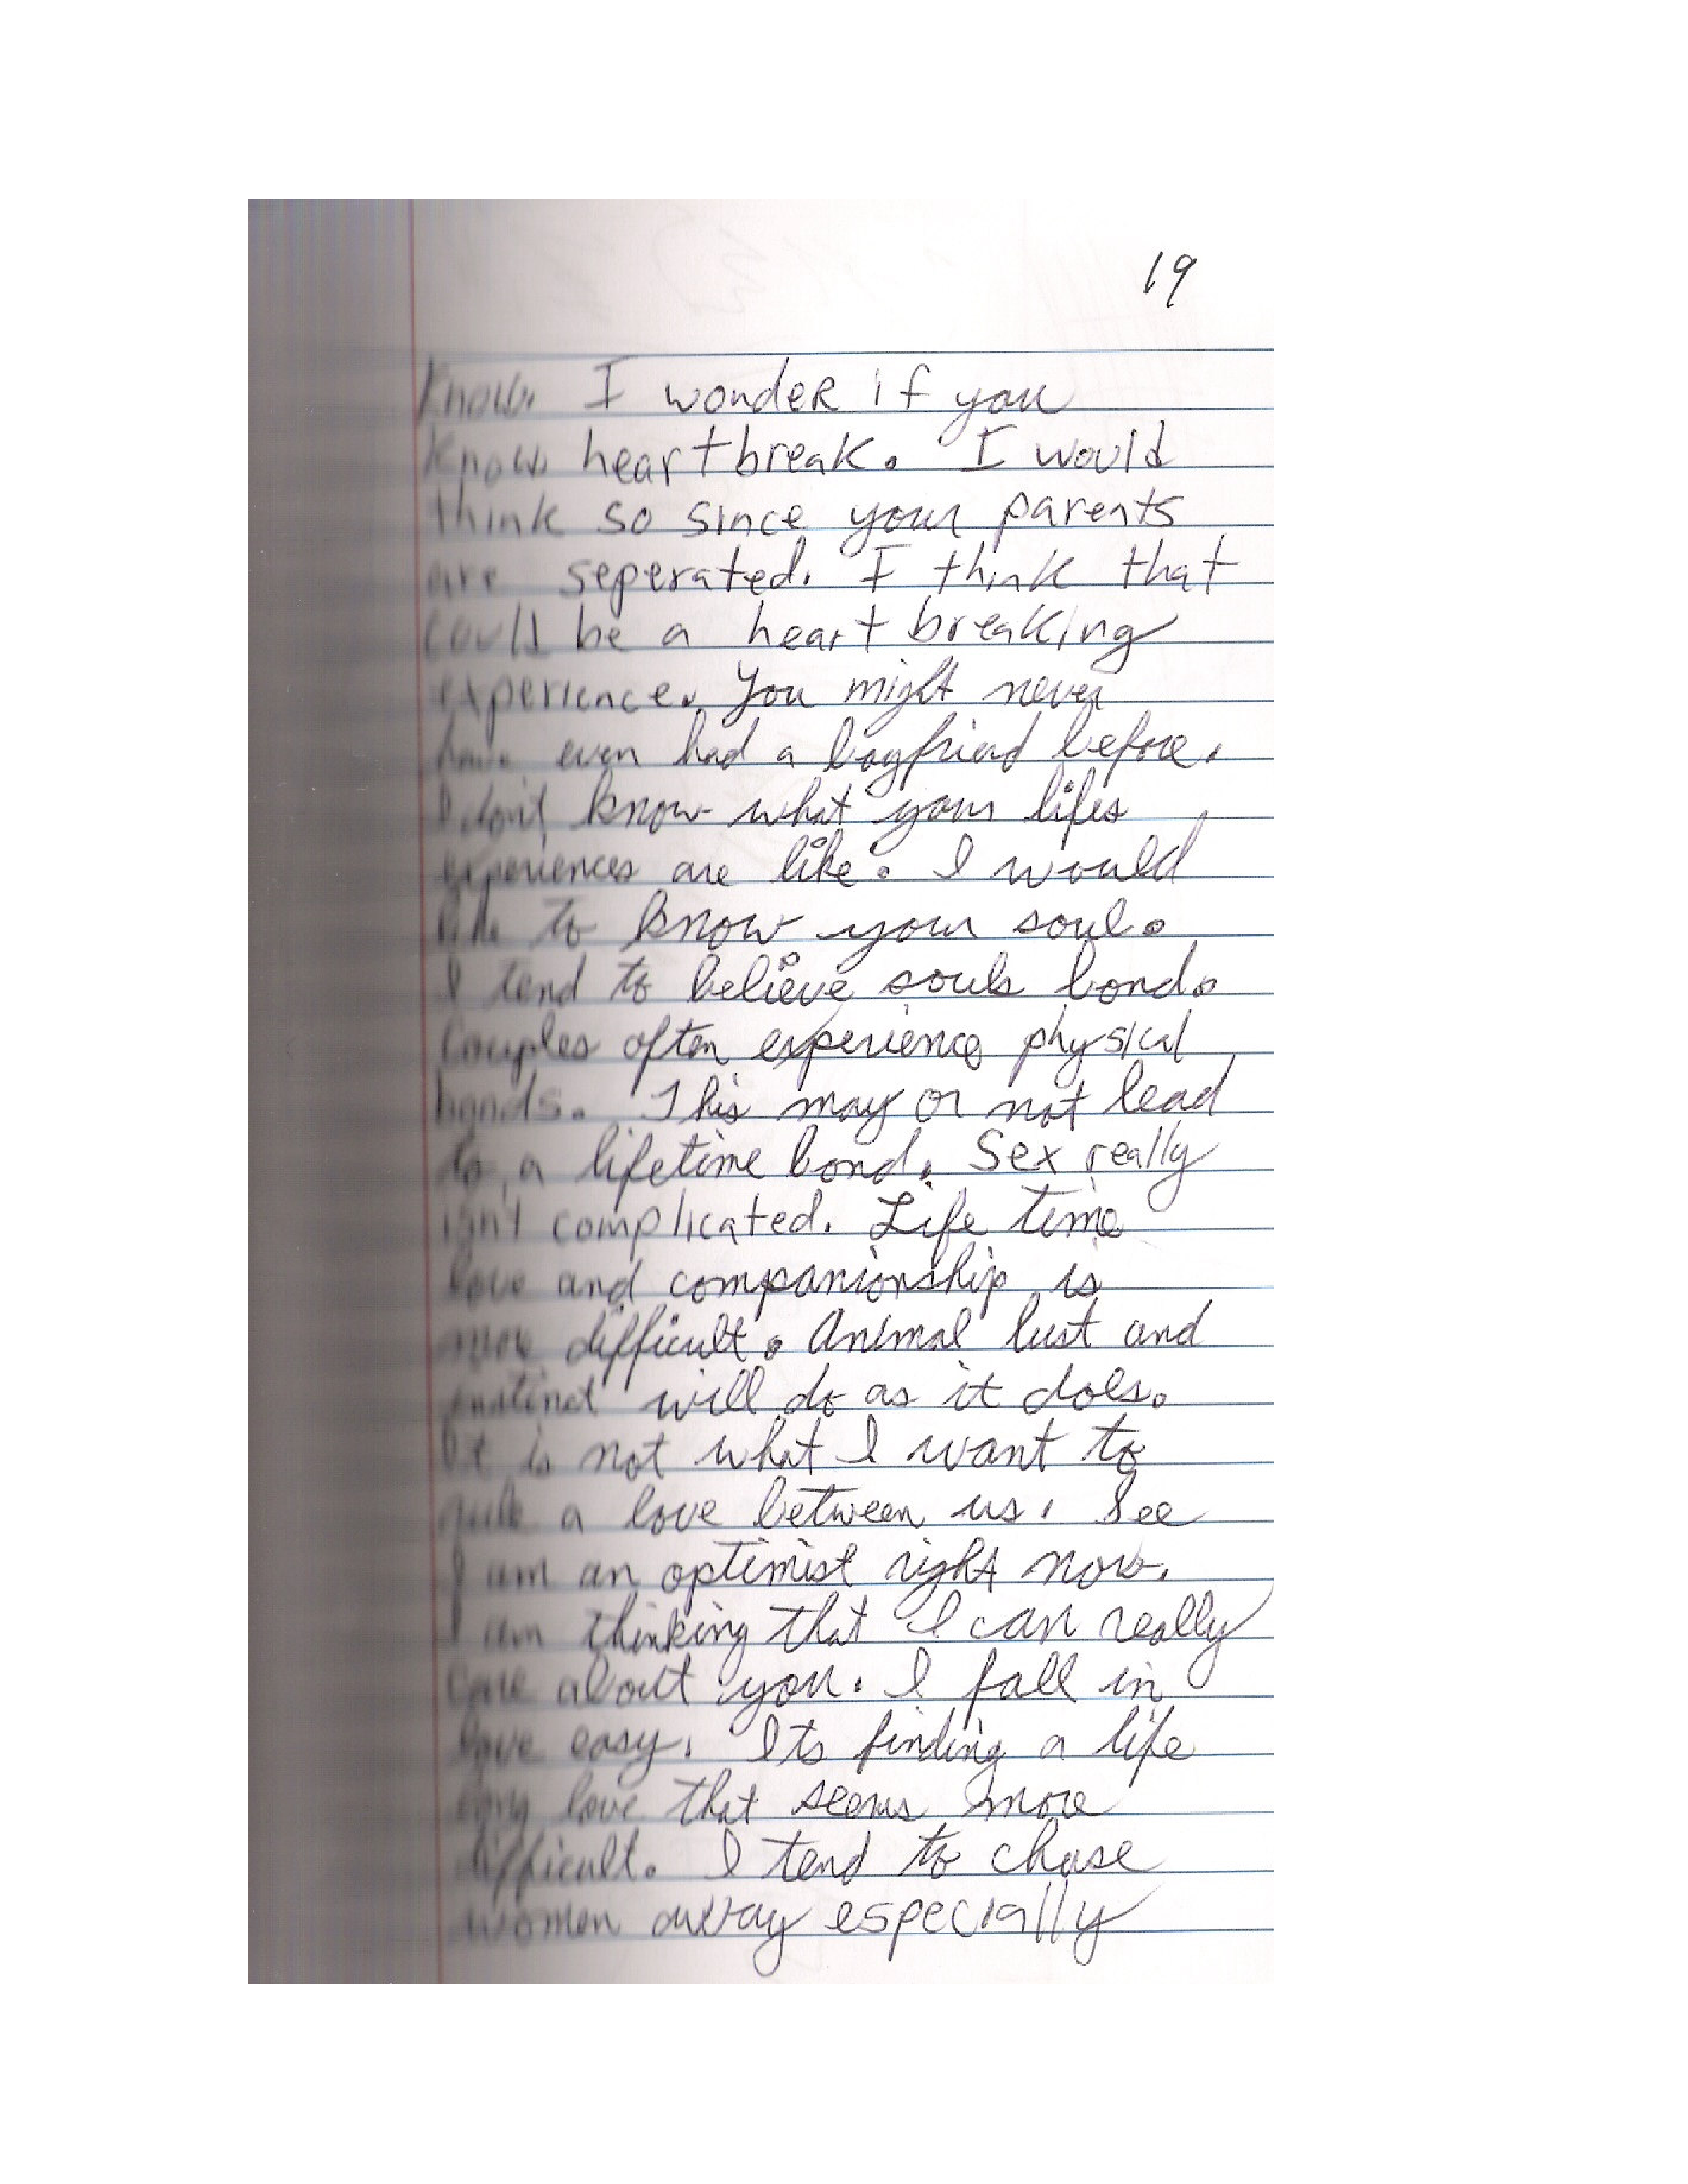 19
Know. I wonder if you
Know heartbreak. I would
think so since your parents
are seperated. I think that
could be a heart breaking
experience. You might never
have even had a boyfriend before.
I don't know what your lifes
experiences are like. I would
like to know your soul.
I tend to believe souls bond.
Couples often experience physical
bonds. This may or not lead
to a lifetime bond. Sex really
isn't complicated. Life time
love and companionship is
more difficult. Animal lust and
instinct will do as it does.
It is not what I want to
guide a love between us. See
I am an optimist right now.
I am thinking that I can really
care about you. I fall in
love easy. Its finding a life
long love that seems more
difficult. I tend to chase
women away especially